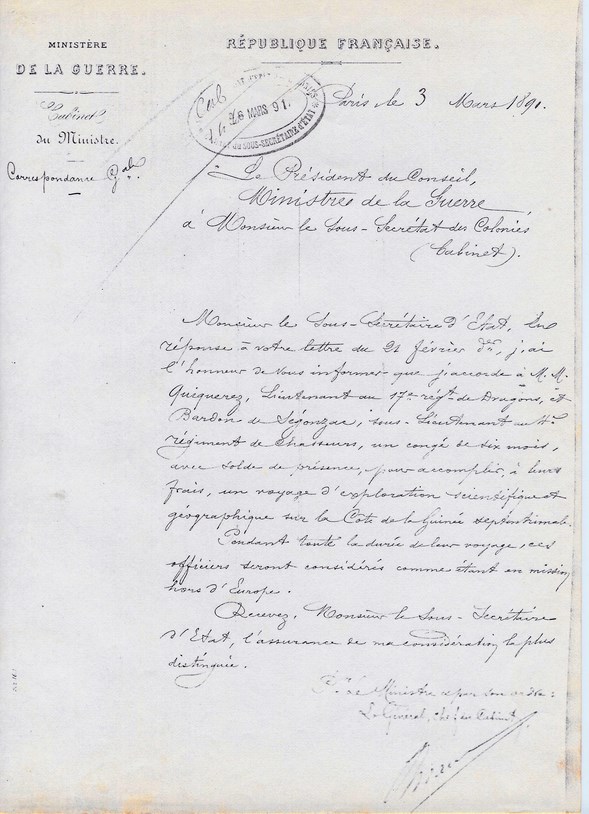 MINISTÈRE
DE LA GUERRE.
Cabinet
du Ministre.
Correspondance Gale
RÉPUBLIQUE FRANÇAISE.
6 MARS 91.
SOUS-SECRÉTAIRE D'ÉTAT
Paris le 3 Mars 1891.
Le Président du Conseil,
Ministres de la Guerre,
à Monsieur le Sous-Secrétat des Colonies
(Cabinet).
Monsieur le Sous-Secrétaire d'Etat, En
réponse à votre lettre du 21 février der, j'ai
l'honneur de vous informer que j'accorde à M. M.
Quiquerez, Lieutenant au 17e régt de Dragons, et
Bardon de Ségonzac, sous-Lieutenant au
régiment de Chasseurs, un congé de six mois,
avec solde de présence, pour accomplir, à leurs
frais, un voyage d'exploration scientifique et
géographique sur la Côte de la Guinée septentrionale.
Pendant toute la durée de leur voyage, ces
officiers seront considérés comme étant en mission
hors d'Europe.
Recevez, Monsieur le Sous-Secrétaire
d'Etat, l'assurance de ma considération la plus
distinguée.
Pr Le Ministre et par son ordre:
Le Général, Chef du Cabinet,